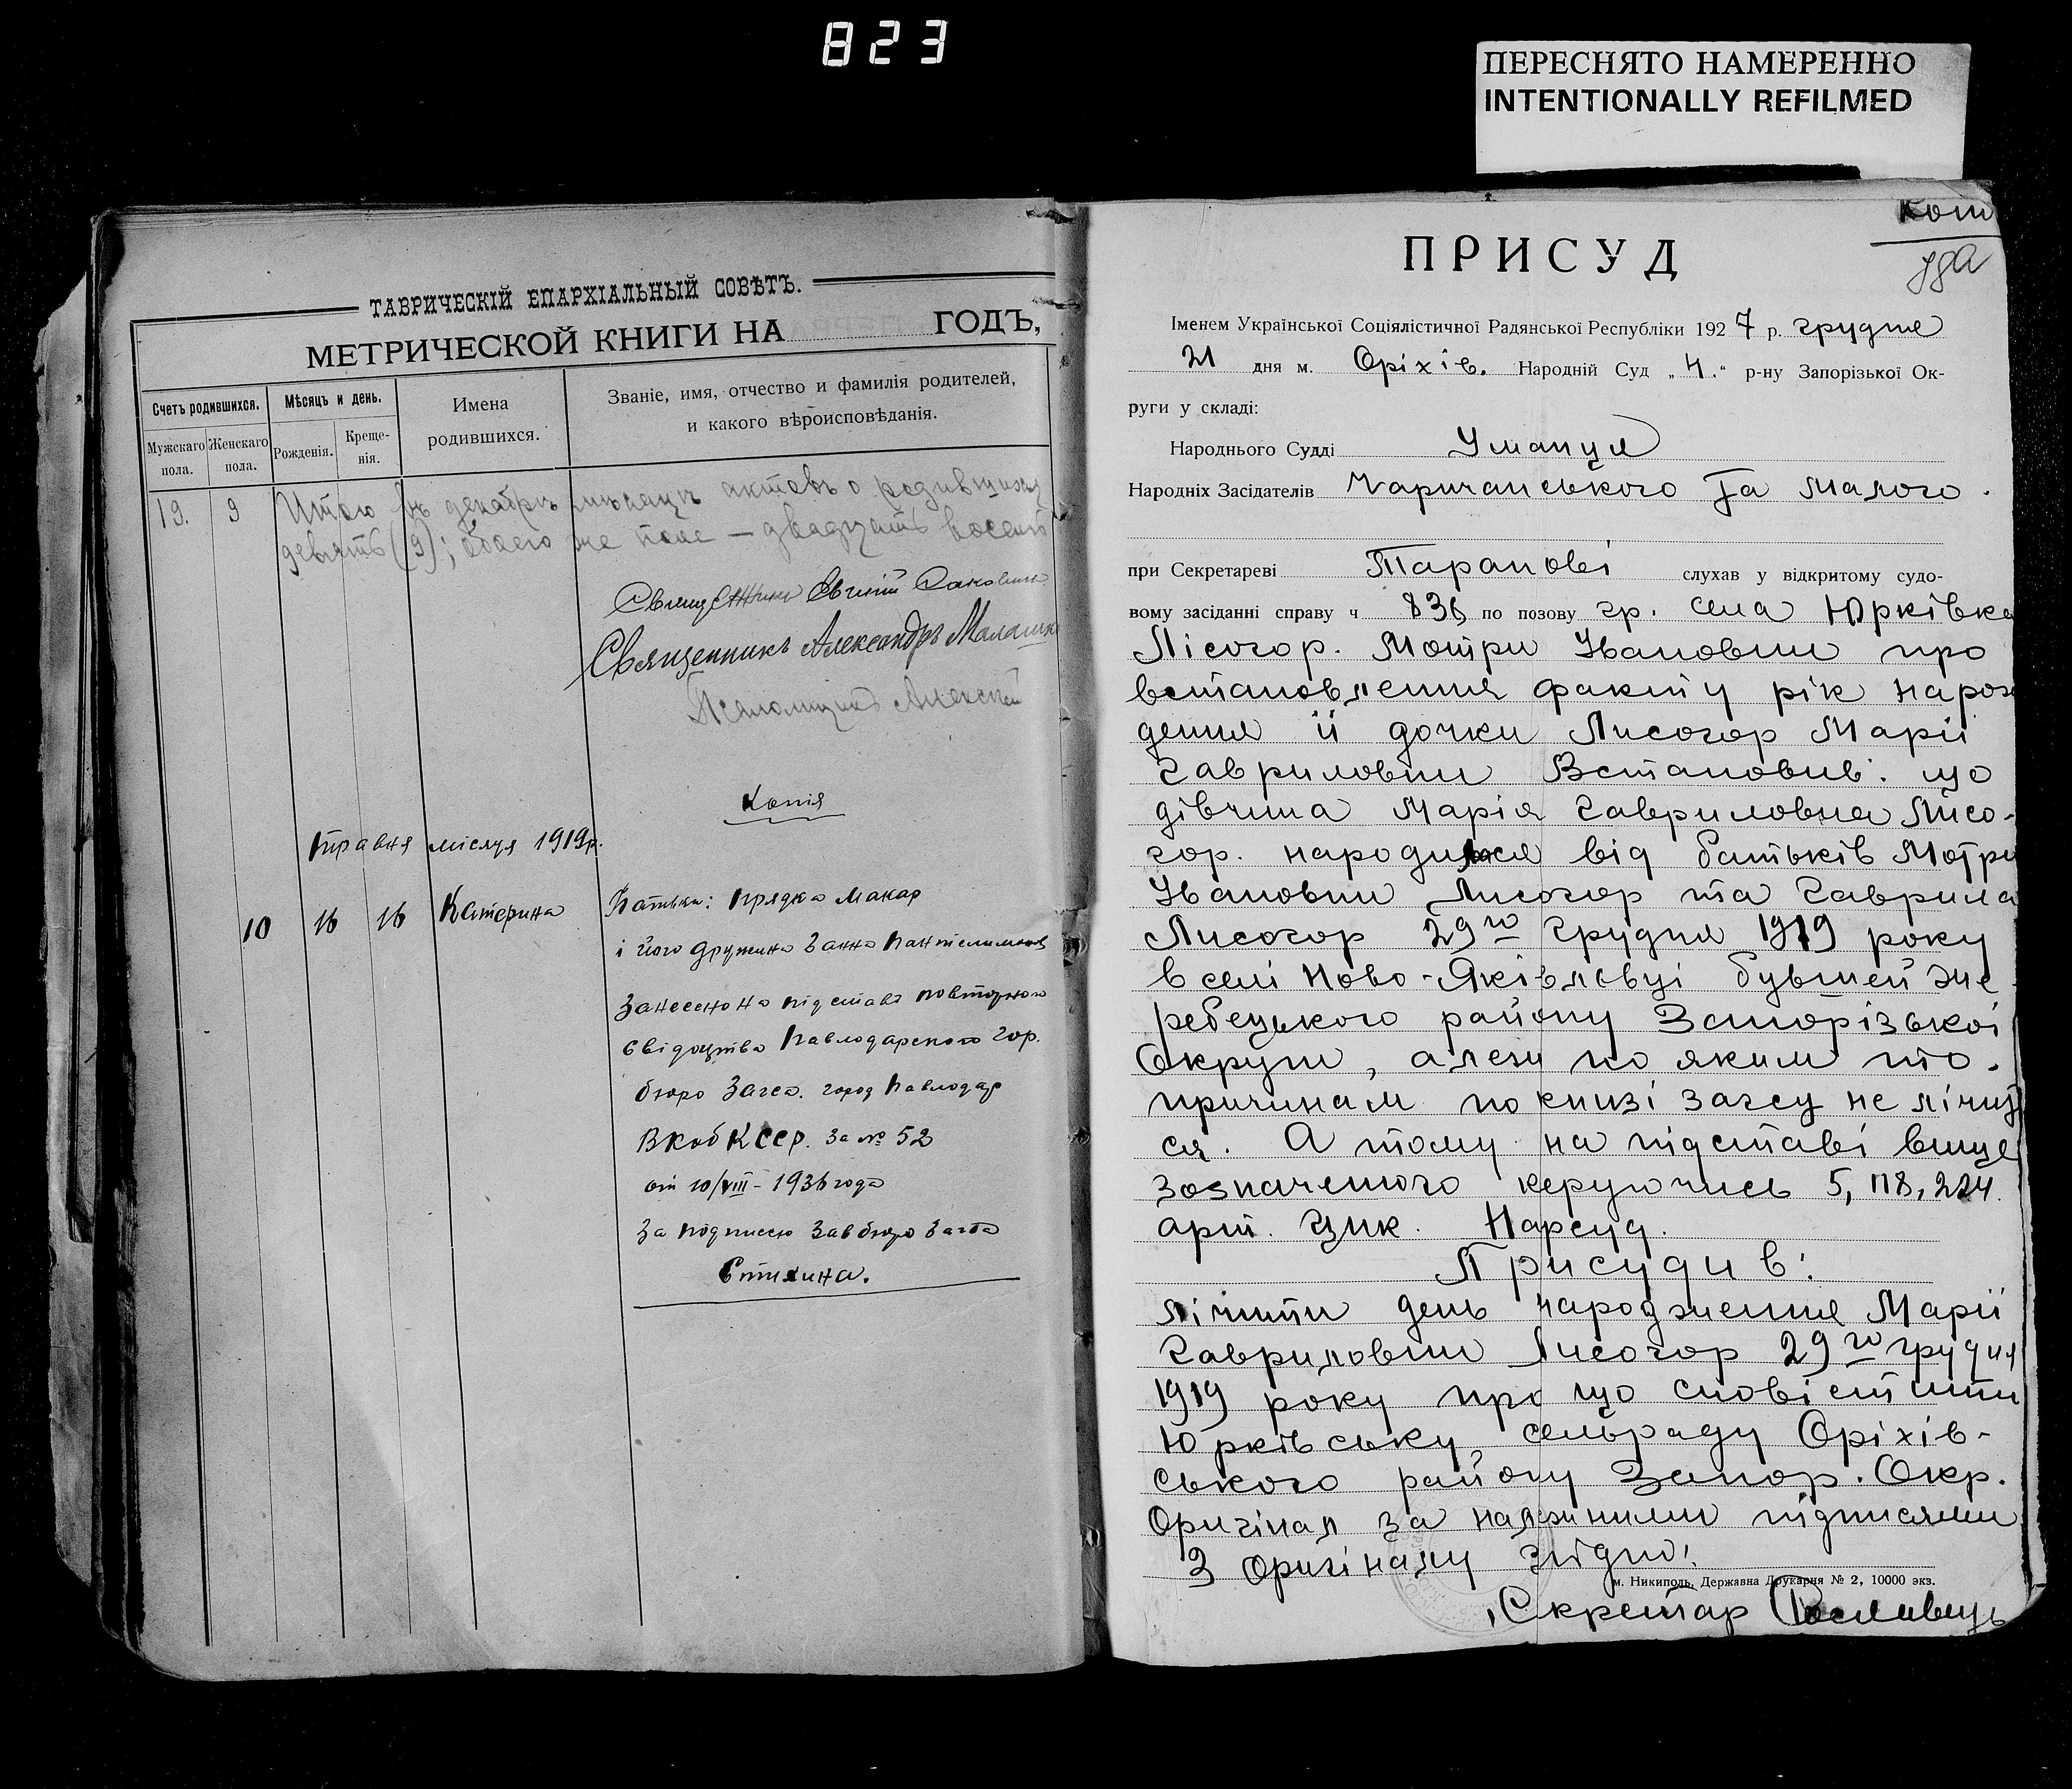 823
ПЕРЕСНЯТО НАМЕРЕННО
INTENTIONALLY REFILMED
ТАВРИЧЕСКІЙ ЕПАРХІАЛЬНЫЙ СОВѢТЪ.
МЕТРИЧЕСКОЙ КНИГИ НА ГОДЪ,
Счетъ родившихся.
Мужскаго пола.
Женскаго пола.
Мѣсяцъ и день.
Рожденія.
Креще-
нія.
Имена
родившихся.
Званіе, имя, отчество и фамилія родителей,
и какого вѣроисповѣданія.
19. 9 Итого въ декабрѣ мѣсяцѣ актовъ о родившихся
девять (9); обоего же пола — двадцать восемь
Священникъ Евгеній
Священникъ Александръ
Псаломщикъ Алексѣй
Копія
Травня місяця 1919р.
10 16 16 Катерина Батьки: Прядка Макар
і його дружина Ганна
Занесено на підставі повторного
свідоцтва Павлодарского гор.
бюро Загса. город Павлодар
ВКоб КССР. За № 52
от 10/VIII - 1936 года
За подписью Завбюро Загса
Коп
78а
ПРИСУД
Іменем Української Соціялістичної Радянської Республіки 1927 р. грудня
21 дня м. Оріхів. Народній Суд „4.“ р-ну Запорізької Ок-
руги у складі:
Народнього Судді Уманця
Народніх Засідателів Чаричанського та Малого.
при Секретареві Таранові слухав у відкритому судо-
вому засіданні справу ч 836 по позову гр. села Юрківка
Лісогор. Мотри Ивановни про
встановлення факту рік нарож
дення її дочки Лисогор Марії
Гавриловни Встановив: що
дівчина Марія Гавриловна Лисо-
гор. народилася від батьків Мотри
Ивановни Лисогор та Гаврила
Лисогор 29го грудня 1919 року
в селі Ново-Яківлевці бувшей Же
ребецького району Запорізької
Округи, але по яким то
причинам по книзі загсу не лічит
ся. А тому на підставі вище
зозначеного керуючись 5, 118, 224.
арт. ЦПК. Нарсуд.
Присудив:
Лічити день народження Марії
Гавриловни Лисогор 29го грудня
1919 року про що сповістити
Юрківську сельраду Оріхів-
ського району Запор. Окр.
Оригінал за належними підписями
З Оригіналу згідно!
м. Никиполь, Державна Друкарня № 2, 10000 экз.
Скретар